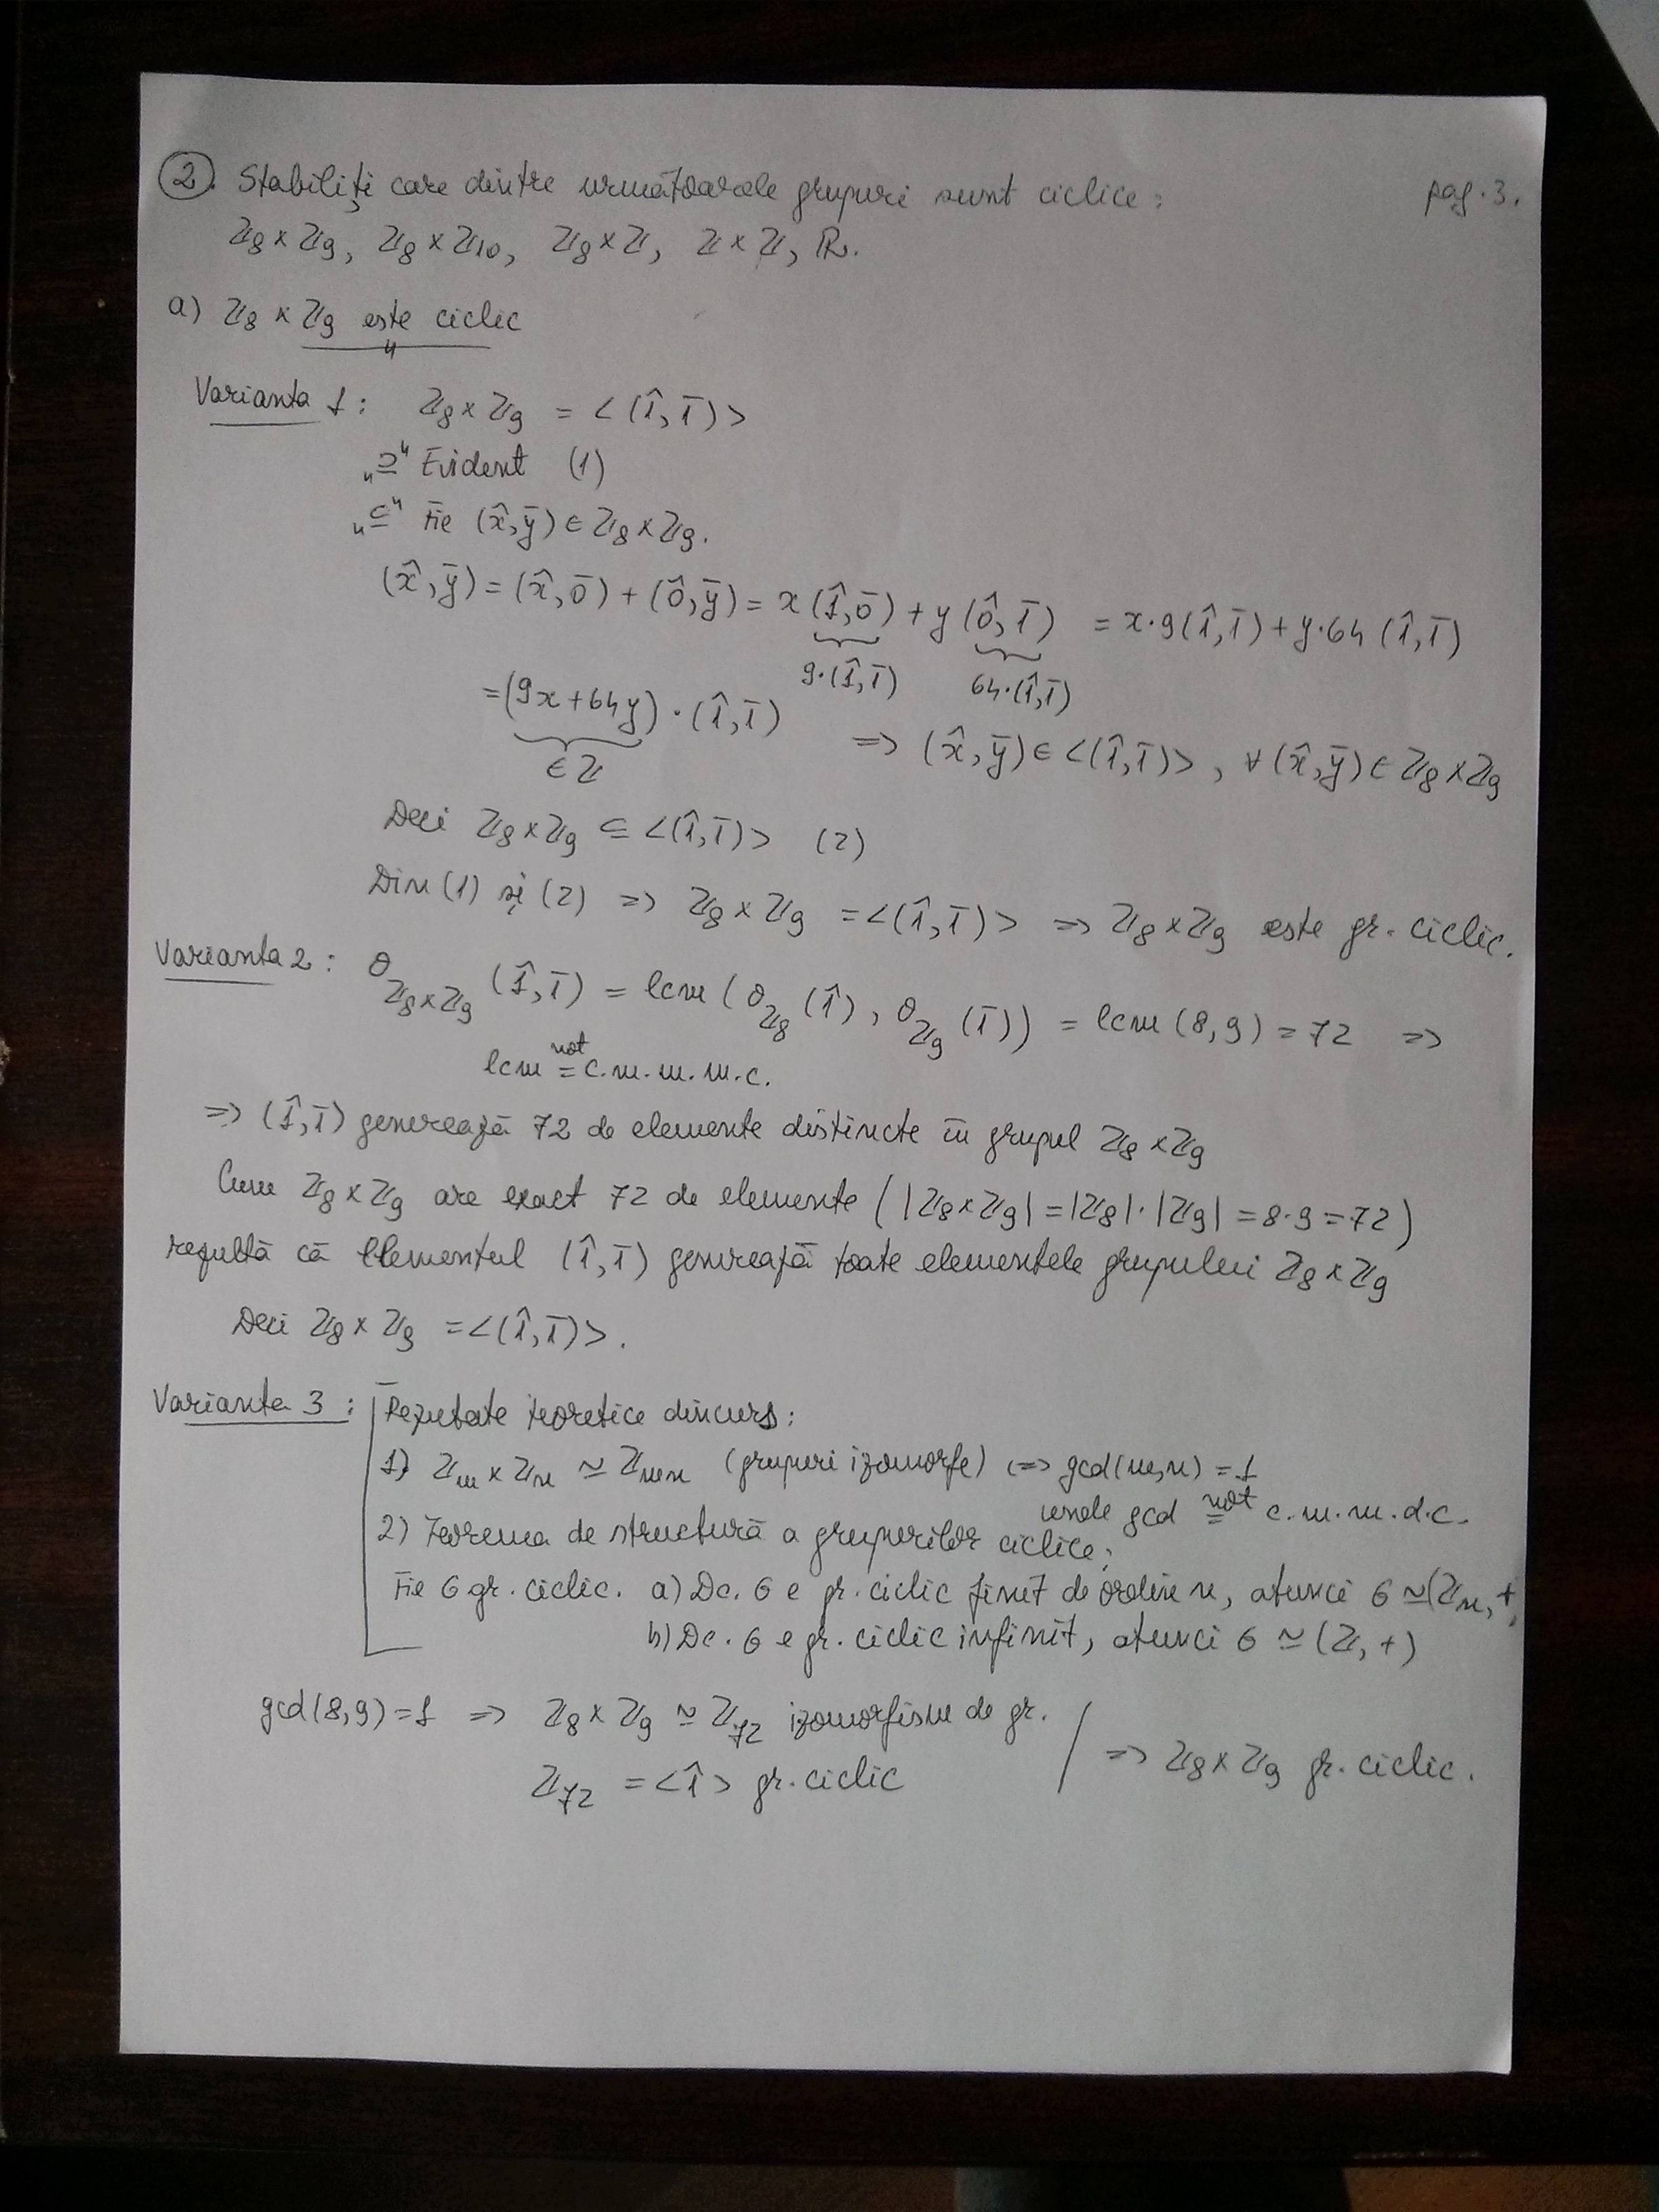 ② Stabiliți care dintre următoarele grupuri sunt ciclice: pag. 3.
ℤ₈ × ℤ₉, ℤ₈ × ℤ₁₀, ℤ₈ × ℤ, ℤ × ℤ, ℝ.
a) ℤ₈ × ℤ₉ este ciclic
Varianta 1: ℤ₈ × ℤ₉ = <(1̂, 1̄)>
„⊇" Evident (1)
„⊆" Fie (x̂, ȳ) ∈ ℤ₈ × ℤ₉.
(x̂, ȳ) = (x̂, 0̄) + (0̂, ȳ) = x (1̂, 0̄) + y (0̂, 1̄) = x·9(1̂, 1̄) + y·64 (1̂, 1̄)
9·(1̂, 1̄) 64·(1̂, 1̄)
= (9x + 64y) · (1̂, 1̄) => (x̂, ȳ) ∈ <(1̂, 1̄)>, ∀ (x̂, ȳ) ∈ ℤ₈ × ℤ₉
∈ ℤ
Deci ℤ₈ × ℤ₉ ⊆ <(1̂, 1̄)> (2)
Din (1) și (2) => ℤ₈ × ℤ₉ = <(1̂, 1̄)> => ℤ₈ × ℤ₉ este gr. ciclic.
Varianta 2: θ_{ℤ₈×ℤ₉} (1̂, 1̄) = lcm (θ_{ℤ₈} (1̂), θ_{ℤ₉} (1̄)) = lcm (8, 9) = 72 =>
lcm not= c.m.m.m.c.
=> (1̂, 1̄) generează 72 de elemente distincte în grupul ℤ₈ × ℤ₉
Cum ℤ₈ × ℤ₉ are exact 72 de elemente (|ℤ₈ × ℤ₉| = |ℤ₈| · |ℤ₉| = 8·9 = 72)
rezultă că elementul (1̂, 1̄) generează toate elementele grupului ℤ₈ × ℤ₉
Deci ℤ₈ × ℤ₉ = <(1̂, 1̄)>.
Varianta 3: Rezultate teoretice din curs:
1) ℤₘ × ℤₙ ≃ ℤₘₙ (grupuri izomorfe) <=> gcd(m, n) = 1
unde gcd not= c.m.m.d.c.
2) Teorema de structură a grupurilor ciclice:
Fie G gr. ciclic. a) Dc. G e gr. ciclic finit de ordin n, atunci G ≃ (ℤₙ, +)
b) Dc. G e gr. ciclic infinit, atunci G ≃ (ℤ, +)
gcd(8, 9) = 1 => ℤ₈ × ℤ₉ ≃ ℤ₇₂ izomorfism de gr.
ℤ₇₂ = <1̂> gr. ciclic => ℤ₈ × ℤ₉ gr. ciclic.